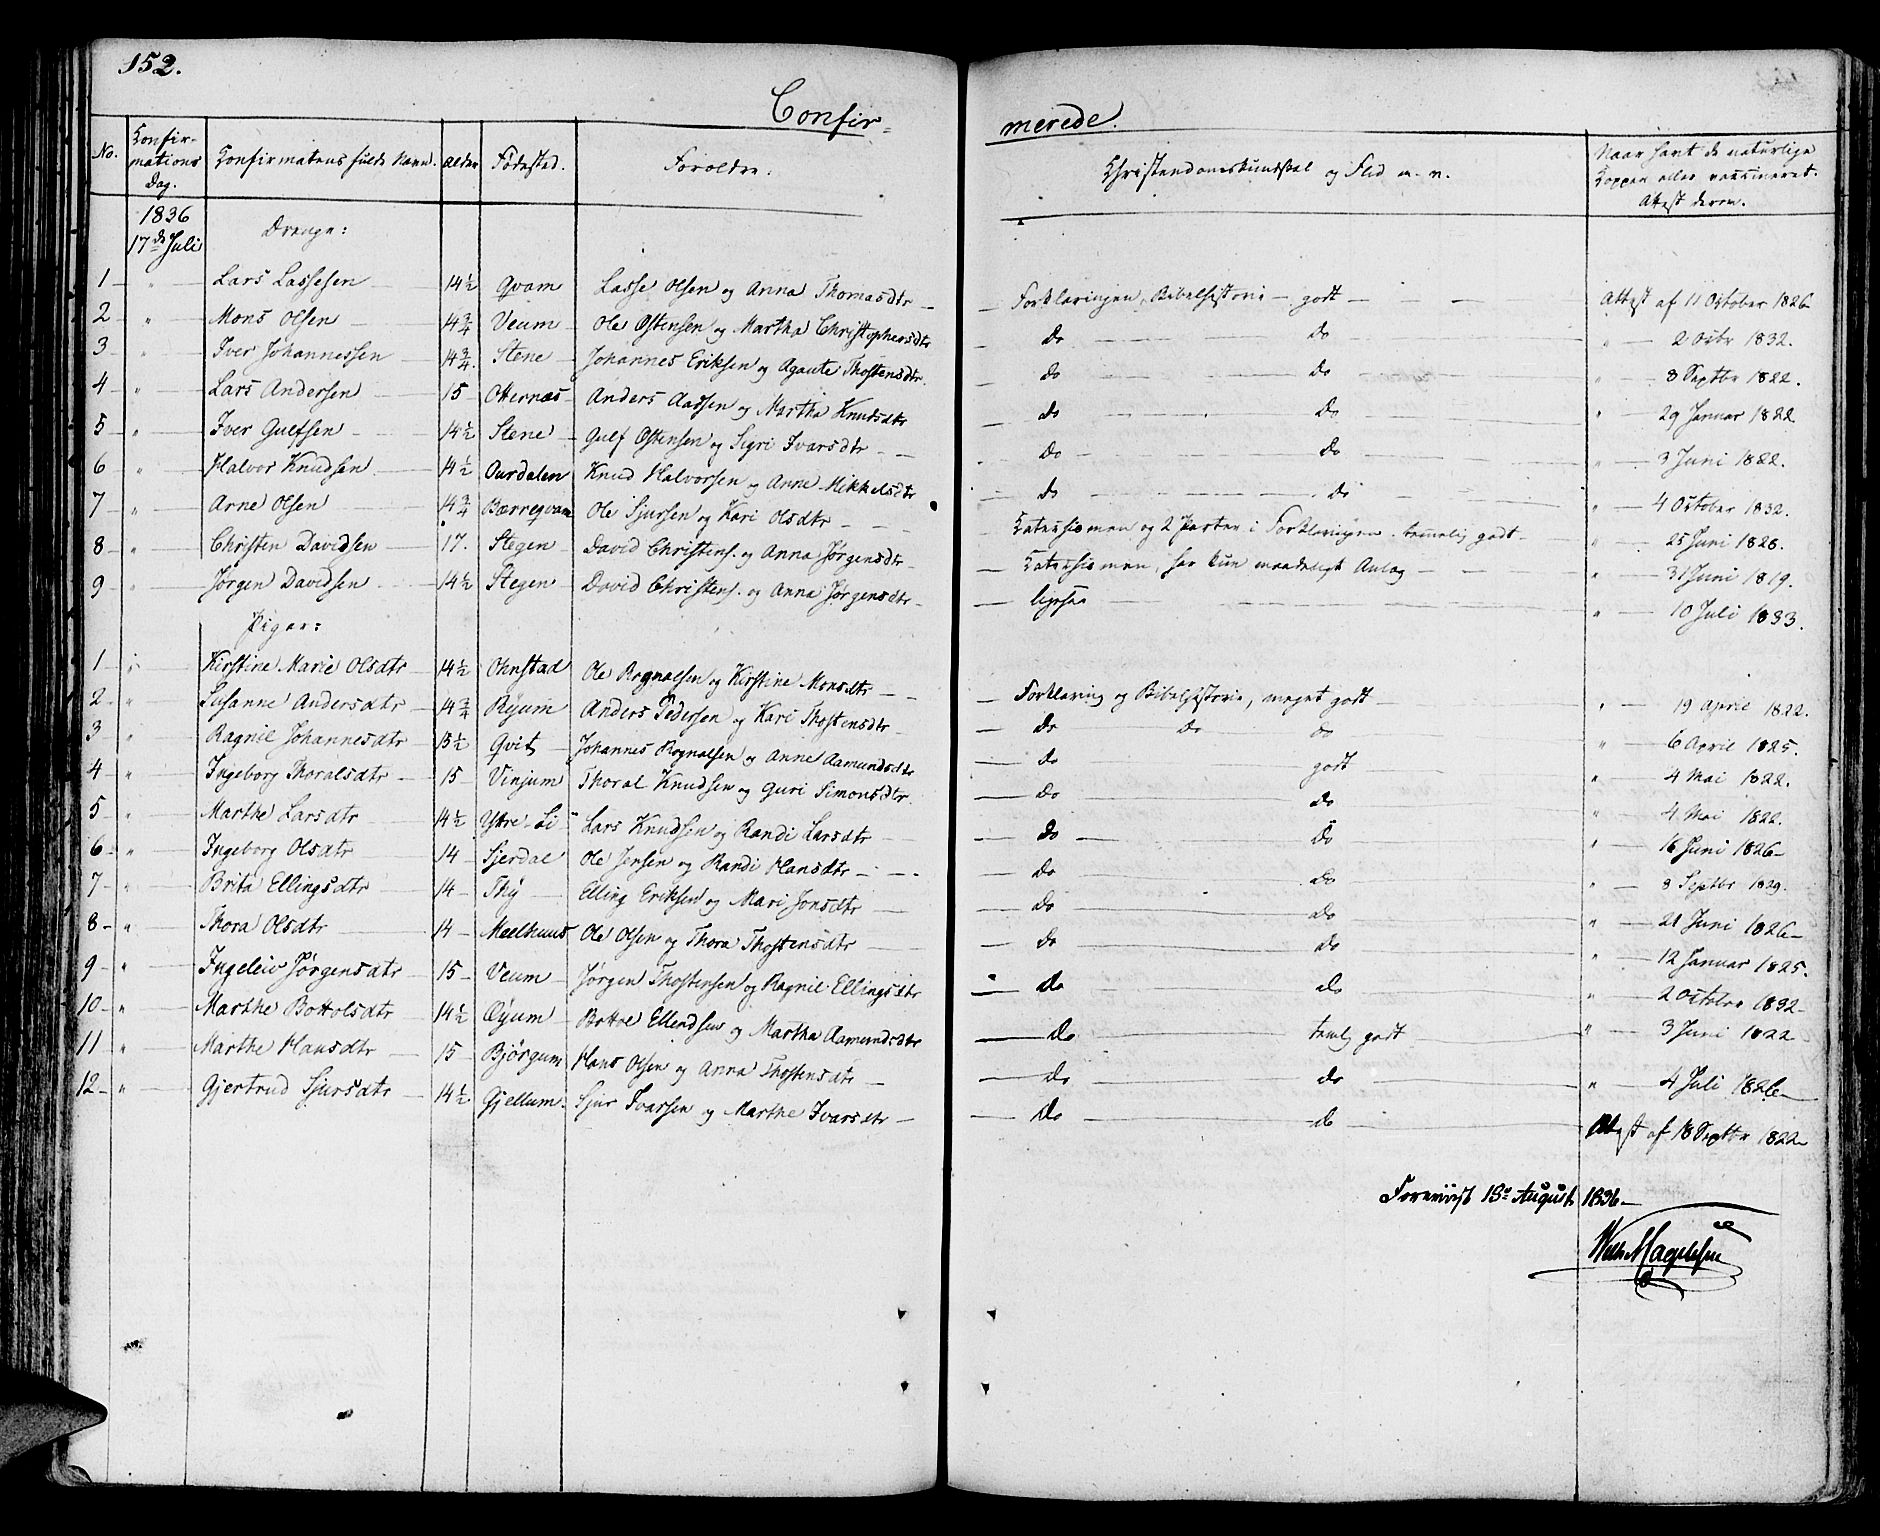 152.
Confir-
merede.
No.
Konfir-
mations
Dag.
Konfirmatens fulde Navn.
Alder
Fødested.
Foroldre.
Christendomskundskab og Flid m. v.
Naar havt de naturlige
Kopper eller vaccineret.
Attest derom.
1836
17de Juli
Drenge:
1 — " — Lars Lassesen — 14½ Qvam Lasse Olsen og Anna Thomasdtr — Forklaringen, Bibelhistorie — godt — Attest af 11 October 1826
2 — " — Mons Olsen — 14¾ Veum — Ole Ostensen og Martha Christophersdtr — do — do — " — 2 Octbr 1832.
3 — " — Iver Johannessen — 14¾ Stene — Johannes Eriksen og Agaute Thostensdtr. — do — do — " — 8 Septbr 1822.
4 — " — Lars Andersen — 15 — Otternæs — Anders Aassen og Martha Knudsdtr — do — do — " — 29 Januar 1822
5 — " — Iver Gulfsen — 14½ Stene — Gulf Ostensen og Sigri Ivarsdtr — do — do — " — 3 Juni 1822.
6 — " — Halvor Knudsen — 14½ Ourdalen Knud Halvorsen og Anne Mikkelsdtr — do — do — " — 4 October 1832.
7 — " — Arne Olsen — 14¾ Bærreqvam Ole Sjursen og Kari Olsdtr — Katechismen og 2 Parter i Forklaringen temelig godt — " — 25 Juni 1828.
8 — " — Christen Davidsen — 17. Stegen — David Christens. og Anna Jørgensdtr — Katechismen, har kun maadeligt Anlæg — " — 31 Juni 1819.
9 — " — Jørgen Davidsen — 14½ Stegen — David Christens. og Anna Jørgensdtr — ligesaa — " — 10 Juli 1833.
Piger:
1 — " — Kirstine Marie Olsdtr — 14½ Ohnstad Ole Rognalsen og Kirstine Monsdtr — Forklaring og Bibelhistorie, meget godt — " — 19 April 1822.
2 — " — Susanne Andersdtr — 14¾ Ryum — Anders Pedersen og Kari Thostensdtr — do — do — do — " — 6 April 1825.
3 — " — Ragnil Johannesdtr 15½ Qvit — Johannes Rognalsen og Anne Aamundsdtr — do — godt — " — 4 Mai 1822.
4 — " — Ingeborg Thoralsdtr — 15 — Vinjum — Thoral Knudsen og Guri Simonsdtr. — do — do — " — 4 Mai 1822.
5 — " — Marthe Larsdtr — 14½ Yttre-Li Lars Knudsen og Randi Larsdtr — do — do — " — 16 Juni 1826 —
6 — " — Ingeborg Olsdtr — 14 — Sjerdal Ole Jensen og Randi Hansdtr — do — do — " — 8 Septbr 1829.
7 — " — Brita Ellingsdtr — 14 — Thy — Elling Eriksen og Mari Jonsdtr — do — do — " — 21 Juni 1826 —
8 — " — Thora Olsdtr — 14 — Meelhuus Ole Olsen og Thora Thostensdtr — do — do — " — 12 Januar 1825.
9 — " — Ingeleiv Jørgensdtr — 15 — Veum — Jørgen Thostensen og Ragnil Ellingsdtr — do — do — " — 2 October 1832 —
10 — " — Marthe Bottolsdtr — 14½ Øyum — Bottol Ellendsen og Martha Aamundsdtr — do — temlig godt — " — 3 Juni 1822
11 — " — Marthe Hansdtr — 15 — Bjørgum Hans Olsen og Anna Thostensdtr — do — do — " — 4 Juli 1826 —
12 — " — Gjertrud Sjursdtr — 14½ Gjellum. Sjur Ivarsen og Marthe Ivarsdtr — do — do — Attest af 18 Septbr 1822 —
Foreviist 18de August 1836 —
Wilh Magelssen